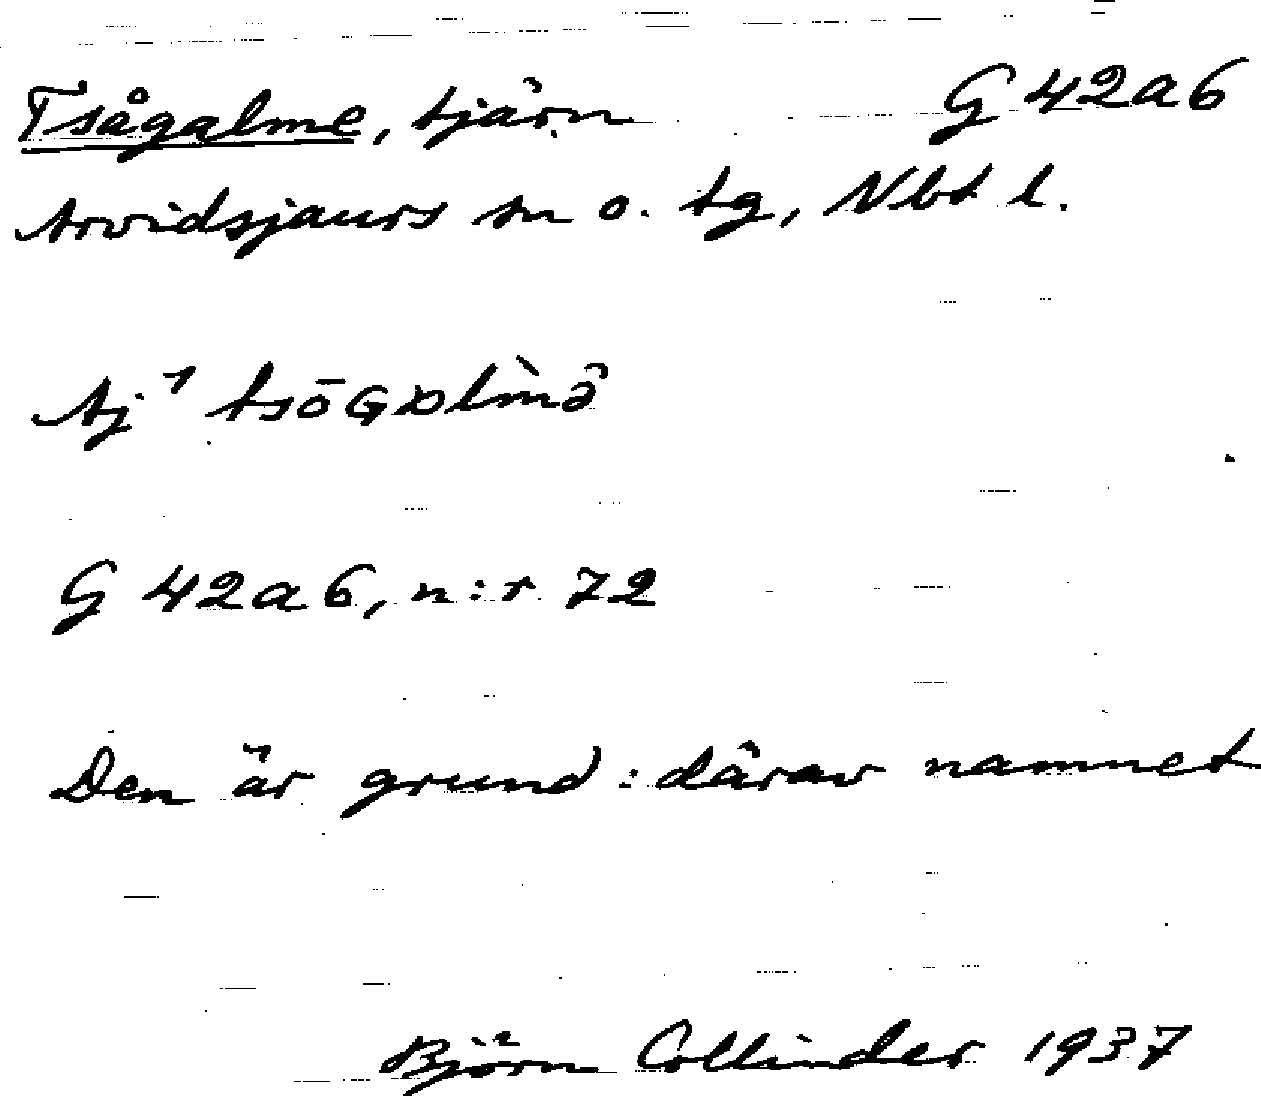 Tsågalme, tjärn G 42a6
Arvidsjaurs sn o. tg, Nbt l.
Aj
G 42a6, n:r 72
Den är grund: därav namnet
Björn Collinder 1937